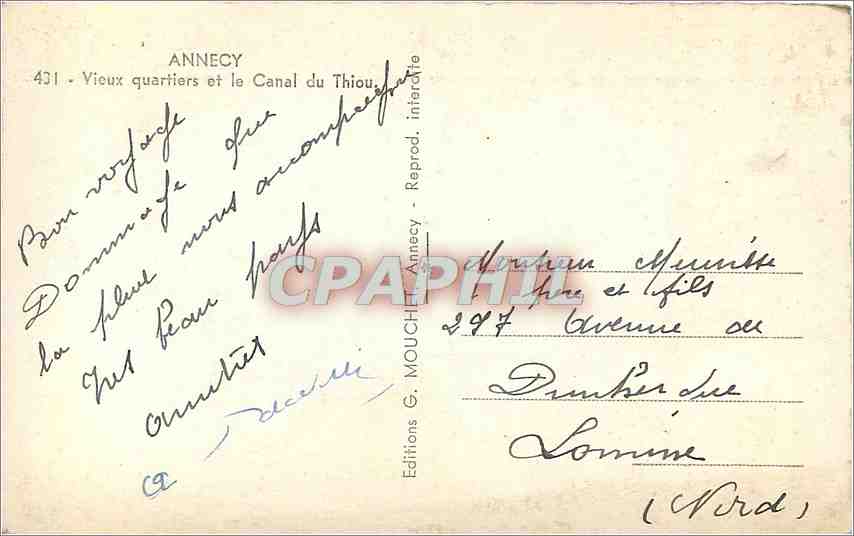 ANNECY
431 - Vieux quartiers et le Canal du Thiou.
Bon voyage
Dommage que
la pluie nous accompagne
Tres beau pays
amitiés
Editions G. MOUCHET, Annecy - Reprod. interdite
CPAPHIL
Monsieur Meurisse
père et fils
297 Avenue de
Dunkerque
Lomme
(Nord)